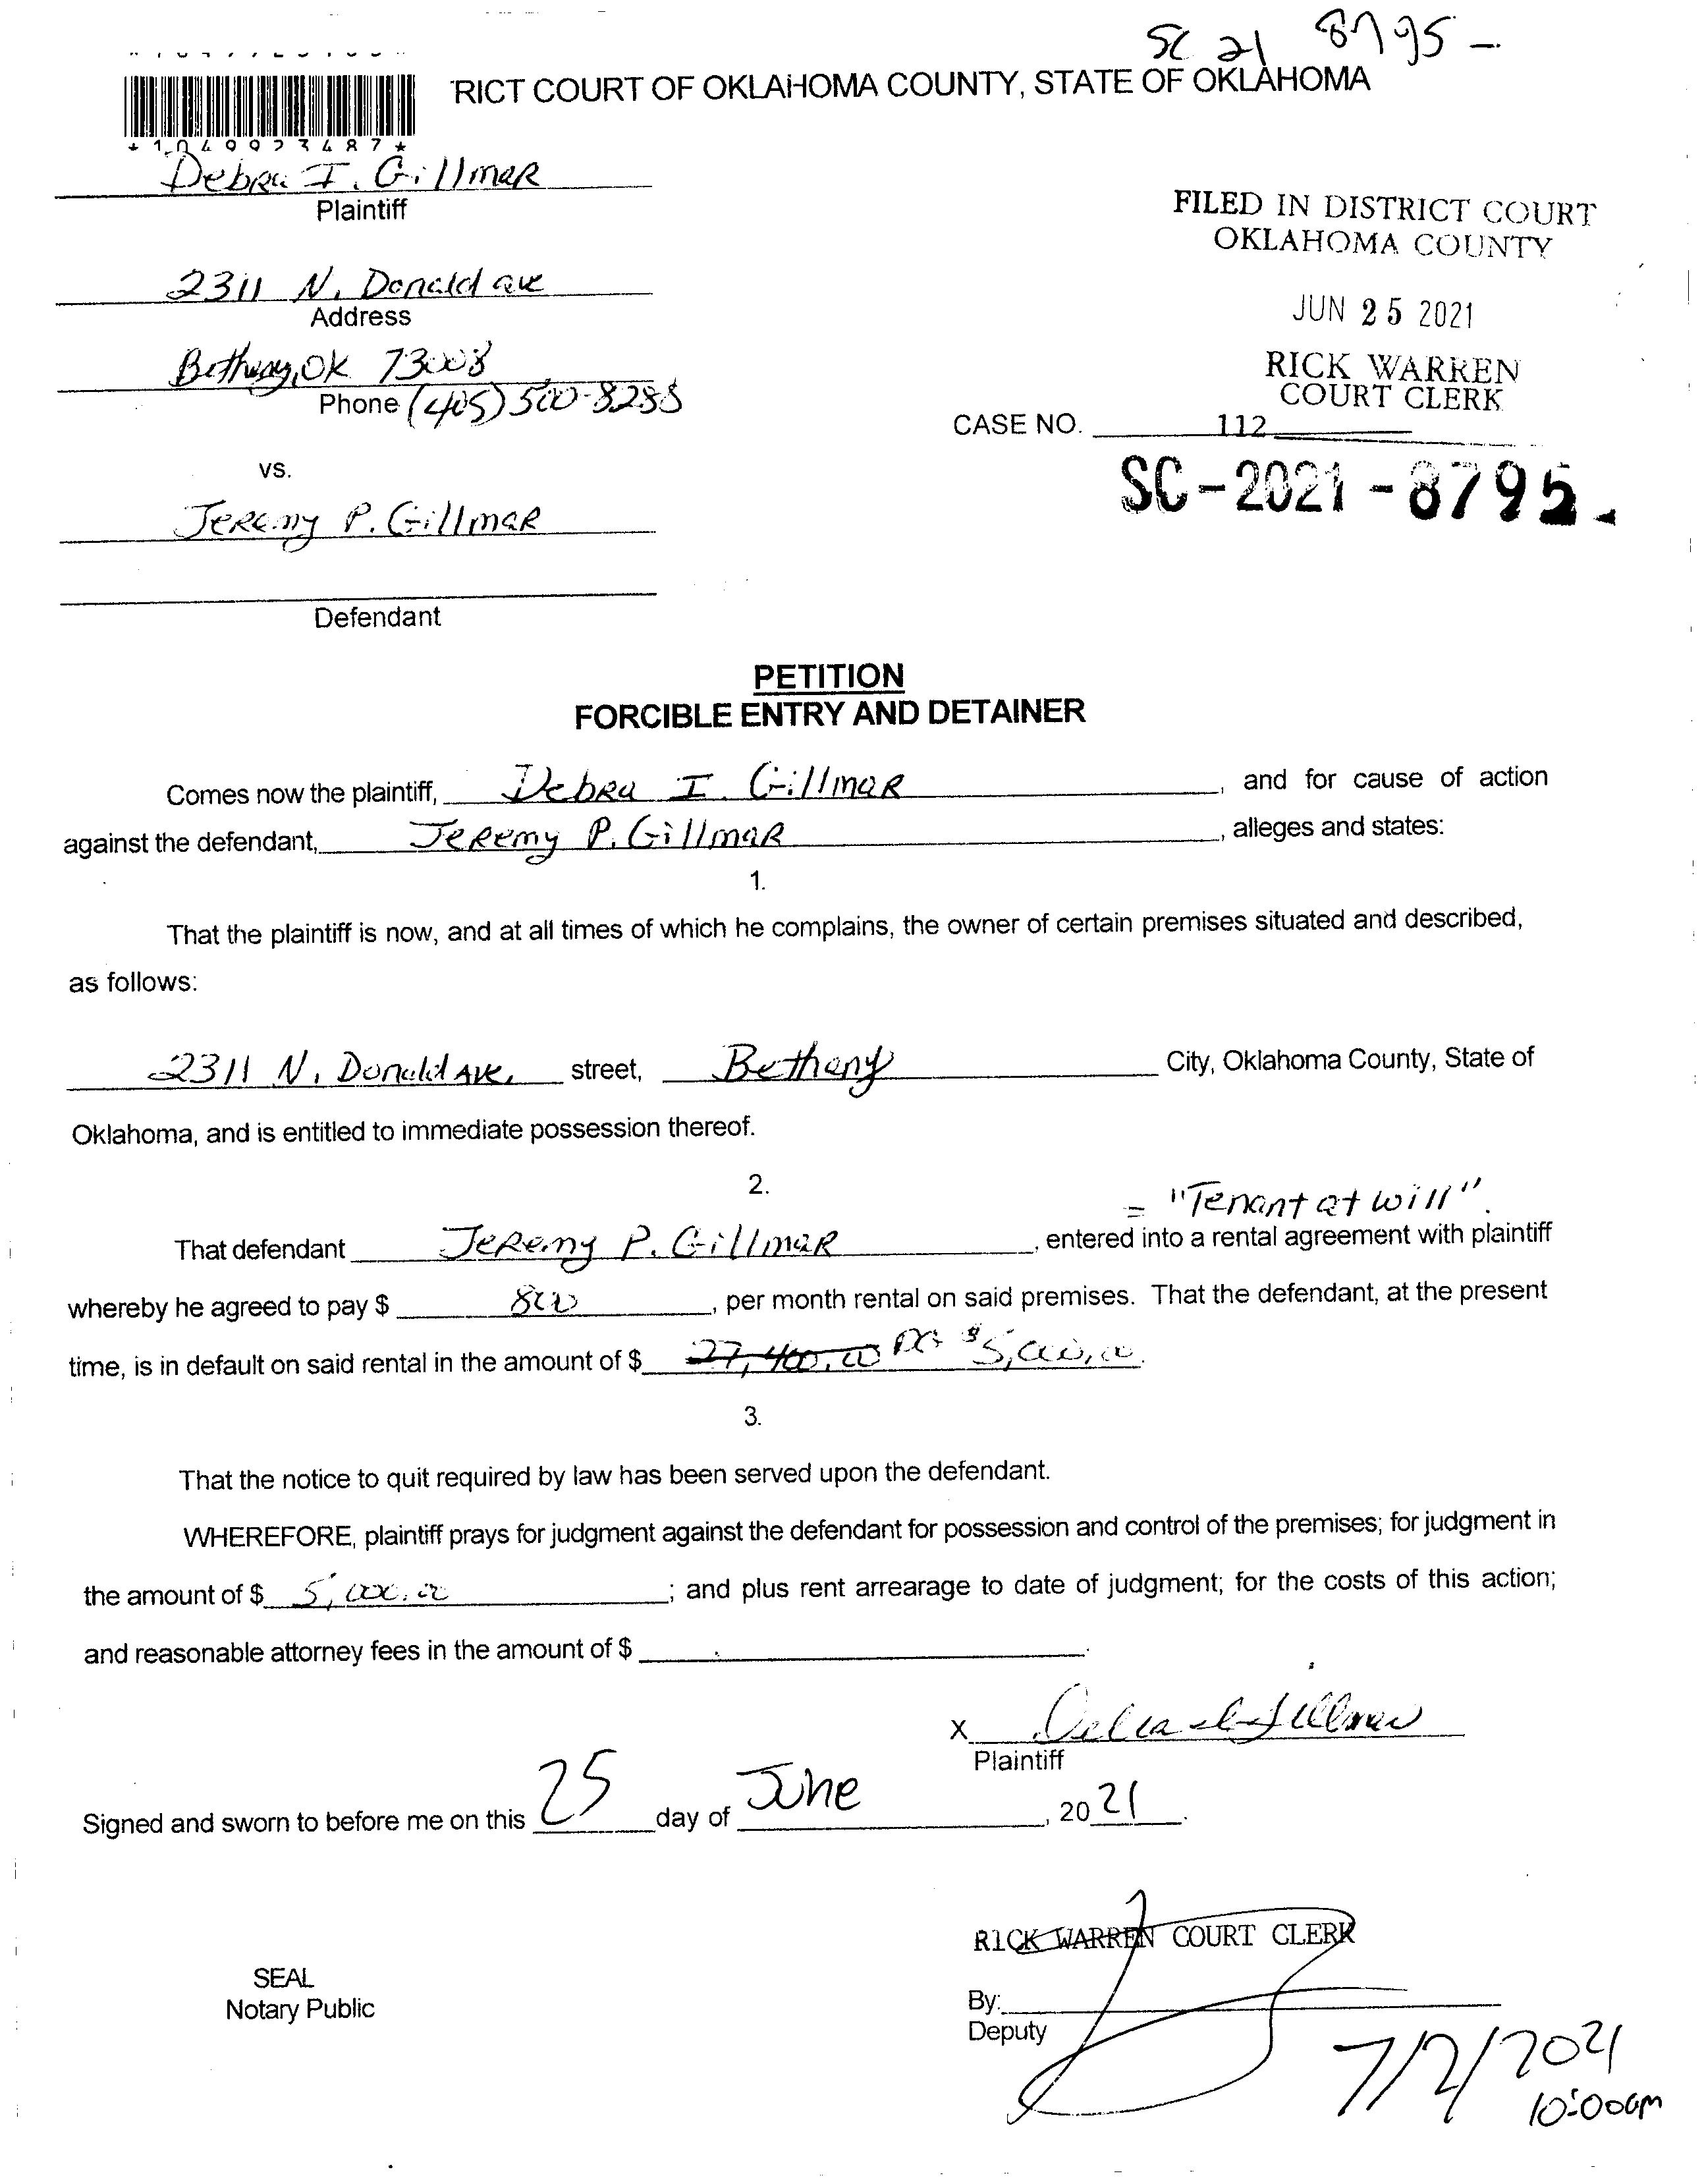 SC 21 8795 -
RICT COURT OF OKLAHOMA COUNTY, STATE OF OKLAHOMA
*1049923487*
Debra I. Gillmar
Plaintiff
FILED IN DISTRICT COURT
OKLAHOMA COUNTY
2311 N. Donald ave
Address
JUN 25 2021
Bethany, OK 73008
RICK WARREN
COURT CLERK
Phone (405) 500-8288
CASE NO. 112
vs.
SC-2021-8795
Jeremy P. Gillmar
Defendant
PETITION
FORCIBLE ENTRY AND DETAINER
Comes now the plaintiff, Debra I. Gillmar, and for cause of action
against the defendant, Jeremy P. Gillmar, alleges and states:
1.
That the plaintiff is now, and at all times of which he complains, the owner of certain premises situated and described,
as follows:
2311 N. Donald Ave. street, Bethany City, Oklahoma County, State of
Oklahoma, and is entitled to immediate possession thereof.
2.
= "Tenant at will".
That defendant Jeremy P. Gillmar, entered into a rental agreement with plaintiff
whereby he agreed to pay $ 800, per month rental on said premises. That the defendant, at the present
time, is in default on said rental in the amount of $ 27,400.00 $5,000.00.
3.
That the notice to quit required by law has been served upon the defendant.
WHEREFORE, plaintiff prays for judgment against the defendant for possession and control of the premises; for judgment in
the amount of $ 5,000.00; and plus rent arrearage to date of judgment; for the costs of this action;
and reasonable attorney fees in the amount of $
X Debra I Gillmar
Plaintiff
Signed and sworn to before me on this 25 day of June, 2021.
RICK WARREN COURT CLERK
SEAL
Notary Public
By:
Deputy
7/2/2021
10:00am